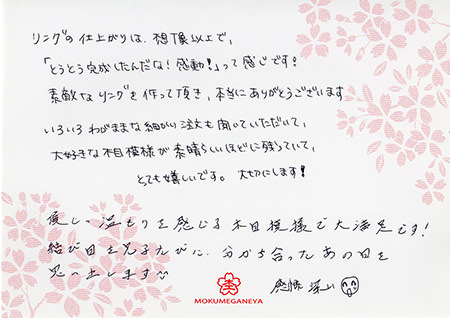 リングの仕上がりは、想像以上で、
「とうとう完成したんだな！感動！」って感じです！
素敵なリングを作って頂き、本当にありがとうございます
いろいろわがままな細かい注文も聞いていただいて、
大好きな木目模様が素晴らしいほどに残っていて、
とても嬉しいです。大切にします！
優しい温もりを感じる木目模様で大満足です！
結び目を見るたびに、分かち合ったあの日を
思い出します
感謝
MOKUMEGANEYA